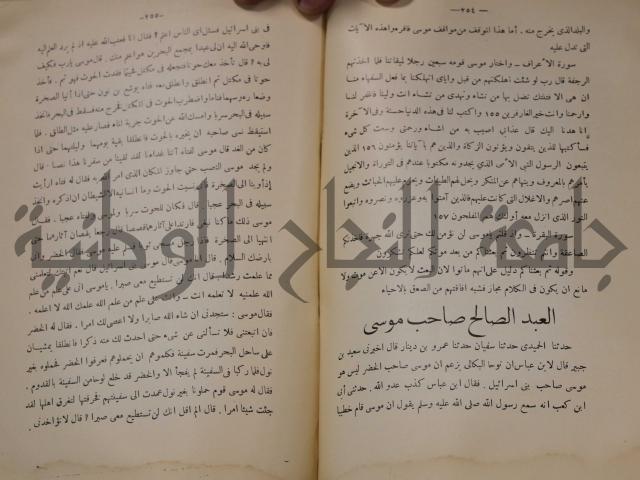 — ٢٥٤ —
والبلد الذى يخرج منه . أما هذا الموقف من مواقف موسى فاقرءوا هذه الآيات
التى تدل عليه
سورة الاعراف - واختار موسى قومه سبعين رجلا لميقاتنا فلما اخذتهم
الرجفة قال رب لو شئت اهلكتهم من قبل واياى اتهلكنا بما فعل السفهاء منا
ان هى الا فتنتك تضل بها من تشاء وتهدى من تشاء انت ولينا فاغفر لنا
وارحمنا وانت خير الغافرين ١٥٥ واكتب لنا فى هذه الدنيا حسنة وفى الآخرة
انا هدنا اليك قال عذابى اصيب به من اشاء ورحمتى وسعت كل شىء
فسأكتبها للذين يتقون ويؤتون الزكاة والذين هم بآياتنا يؤمنون ١٥٦ الذين
يتبعون الرسول النبى الامى الذى يجدونه مكتوبا عندهم فى التوراة والانجيل
يأمرهم بالمعروف وينهاهم عن المنكر ويحل لهم الطيبات ويحرم عليهم الخبائث ويضع
عنهم اصرهم والاغلال التى كانت عليهم فالذين آمنوا به وعزروه ونصروه واتبعوا
النور الذى انزل معه اولئك هم المفلحون ١٥٧
سورة البقرة - واذ قلتم ياموسى لن نؤمن لك حتى نرى الله جهرة فاخذتكم
الصاعقة وانتم تنظرون ثم بعثناكم من بعد موتكم لعلكم تشكرون
وقوله ثم بعثناكم دليل على انهم ماتوا لان البعث لا يكون الا عن موت ولا
مانع ان يكون فى الكلام مجاز فشبه افاقتهم من الصعق بالاحياء
العبد الصالح صاحب موسى
حدثنا الحميدى حدثنا سفيان حدثنا عمرو بن دينار قال اخبرنى سعيد بن
جبير قال لابن عباس ان نوحا البكالى يزعم ان موسى صاحب الخضر ليس هو
موسى صاحب بنى اسرائيل . فقال ابن عباس كذب عدو الله . حدثنى أبي
ابن كعب انه سمع رسول الله صلى الله عليه وسلم يقول ان موسى قام خطيبا
— ٢٥٥ —
فى بنى اسرائيل فسئل اى الناس اعلم ؟ فقال انا فعتب الله عليه اذ لم يرد العلم اليه
فاوحى الله اليه ان لى عبدا بمجمع البحرين هو اعلم منك . قال موسى يارب فكيف
لى به ؟ قال تأخذ معك حوتا فتجعله فى مكتل فحيثما فقدت الحوت فهو ثم . فأخذ
حوتا فى مكتل ثم انطلق وانطلق معه فتاه يوشع بن نون حتى اذا أتيا الصخرة
وضعا رءوسهما فناما واضطرب الحوت فى المكتل فخرج منه فسقط فى البحر فاتخذ
سبيله فى البحر سربا وامسك الله عن الحوت جرية الماء فصار عليه مثل الطاق . فلما
استيقظ نسى صاحبه ان يخبره بالحوت فانطلقا بقية يومهما وليلتهما حتى اذا
كان من الغد قال موسى لفتاه آتنا غداءنا لقد لقينا من سفرنا هذا نصبا . قال
ولم يجد موسى النصب حتى جاوز المكان الذى امر الله به فقال له فتاه أرأيت
إذ أوينا الى الصخرة فانى نسيت الحوت وما انسانيه الا الشيطان ان اذكره واتخذ
سبيله فى البحر عجبا قال فكان للحوت سربا ولموسى ولفتاه عجبا . فقال
موسى ذلك ما كنا نبغى فارتدا على آثارهما قصصا قال رجعا يقصان آثارهما حتى
انتهيا الى الصخرة فاذا رجل مسجى ثوبا فسلم عليه موسى فقال الخضر وانى
بارضك السلام . قال انا موسى قال موسى بنى اسرائيل قال نعم اتيتك لتعلمنى
مما علمت رشدا قال انك لن تستطيع معى صبرا . ياموسى انى على علم من علم
الله علمنيه لا تعلمه انت . وانت على علم من علم الله علمك الله لا اعلمه .
فقال موسى : ستجدنى ان شاء الله صابرا ولا اعصى لك امرا . فقال له الخضر
فان اتبعتنى فلا تسألنى عن شىء حتى احدث لك منه ذكرا فانطلقا يمشيان
على ساحل البحر فمرت سفينة فكلموهم ان يحملوهم فعرفوا الخضر فحملوه بغير
نول فلما ركبا فى السفينة لم يفجأ الا والخضر قد خلع لوحا من السفينة بالقدوم .
فقال له موسى قوم حملونا بغير نول عمدت الى سفينتهم فخرقتها لتغرق اهلها لقد
جئت شيئا امرا . قال الم اقل انك لن تستطيع معى صبرا ؟ قال لا تؤاخذنى
جامعة النجاح الوطنية